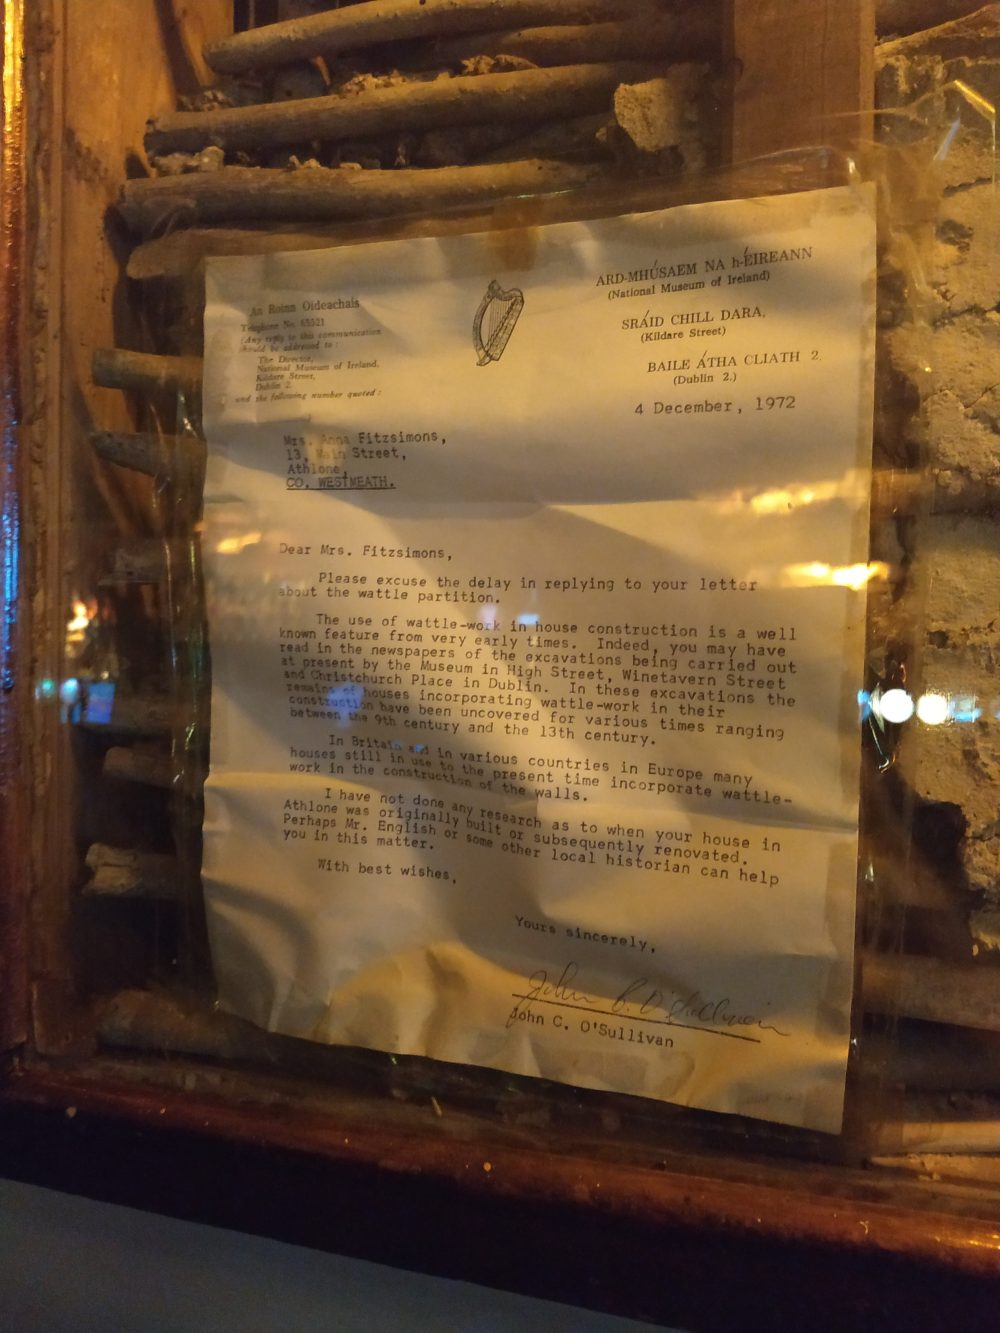 An Roinn Oideachais
Telephone No. 65521
(Any reply to this communication
should be addressed to:
The Director,
National Museum of Ireland,
Kildare Street,
Dublin 2.
and the following number quoted:
ARD-MHÚSAEM NA h-ÉIREANN
(National Museum of Ireland)
SRÁID CHILL DARA,
(Kildare Street)
BAILE ÁTHA CLIATH 2.
(Dublin 2.)
4 December, 1972
Mrs. Anna Fitzsimons,
13, Main Street,
Athlone,
CO. WESTMEATH.
Dear Mrs. Fitzsimons,
Please excuse the delay in replying to your letter
about the wattle partition.
The use of wattle-work in house construction is a well
known feature from very early times. Indeed, you may have
read in the newspapers of the excavations being carried out
at present by the Museum in High Street, Winetavern Street
and Christchurch Place in Dublin. In these excavations the
remains of houses incorporating wattle-work in their
construction have been uncovered for various times ranging
between the 9th century and the 13th century.
In Britain and in various countries in Europe many
houses still in use to the present time incorporate wattle-
work in the construction of the walls.
I have not done any research as to when your house in
Athlone was originally built or subsequently renovated.
Perhaps Mr. English or some other local historian can help
you in this matter.
With best wishes,
Yours sincerely,
John C. O'Sullivan
John C. O'Sullivan